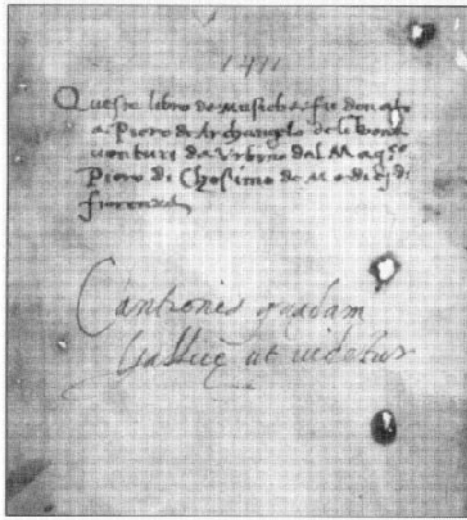 1411
Questo libro de musicha fu donato
a Piero de Archangelo de li bona
venturi da Urbino dal Mag.co
Piero di Chosimo de Medicj di
fiorenza
Cantiones quædam
Gallicę ut videtur